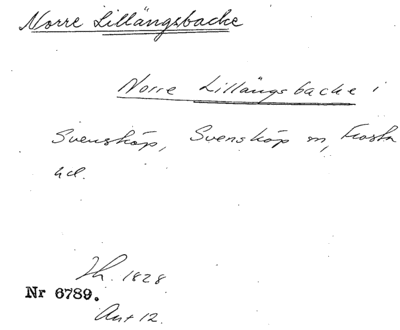 Norre Lillängsbacke
Norre Lillängsbacke i
Svensköp, Svensköp sn, Frosta
hd.
Lh. 1828
Nr 6789.
Ant 12.